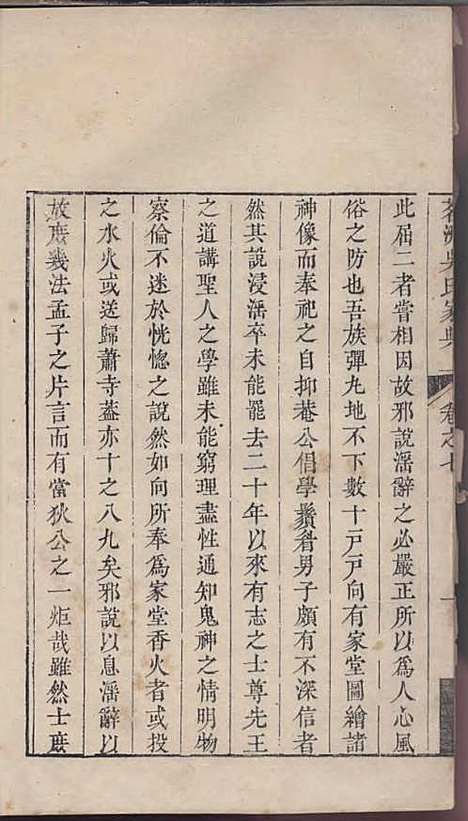 茗洲吳氏家典
卷之七
此屆二者嘗相因故邪說滛辭之必嚴正所以爲人心風
俗之防也吾族彈丸地不下數十戸戸向有家堂圖繪諸
神像而奉祀之自抑菴公倡學黌肴男子頗有不深信者
然其說浸滛卒未能罷去二十年以來有志之士尊先王
之道講聖人之學雖未能窮理盡性通知鬼神之情明物
察倫不迷於恍惚之說然如向所奉爲家堂香火者或投
之水火或送歸蕭寺葢亦十之八九矣邪說以息滛辭以
放庶幾法孟子之片言而有當狄公之一炬哉雖然士庶